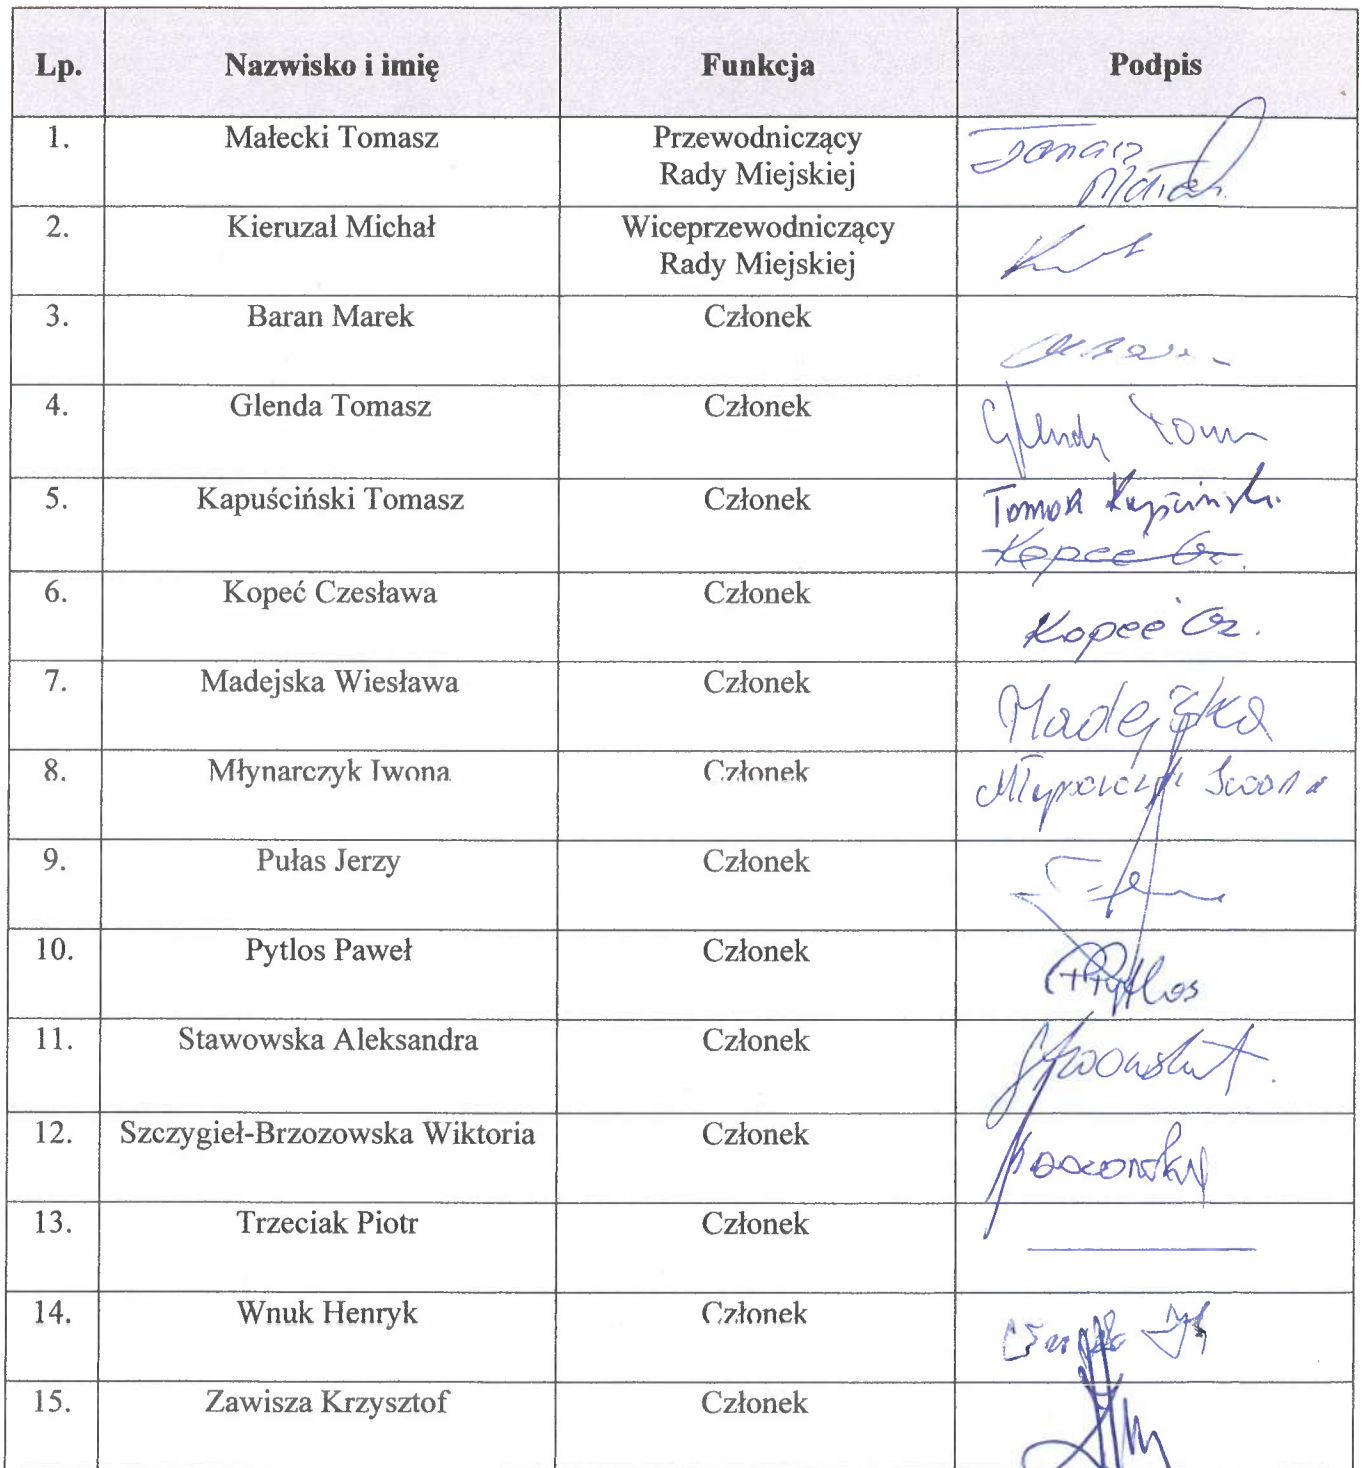 Lp. Nazwisko i imię Funkcja Podpis
1. Małecki Tomasz Przewodniczący
Rady Miejskiej
2. Kieruzal Michał Wiceprzewodniczący
Rady Miejskiej
3. Baran Marek Członek
4. Glenda Tomasz Członek
5. Kapuściński Tomasz Członek
Kopeć Cz.
6. Kopeć Czesława Członek Kopeć Cz.
7. Madejska Wiesława Członek Madejska
8. Młynarczyk Iwona Członek Młynarczyk Iwona
9. Pułas Jerzy Członek
10. Pytlos Paweł Członek Pytlos
11. Stawowska Aleksandra Członek
12. Szczygieł-Brzozowska Wiktoria Członek
13. Trzeciak Piotr Członek
14. Wnuk Henryk Członek
15. Zawisza Krzysztof Członek